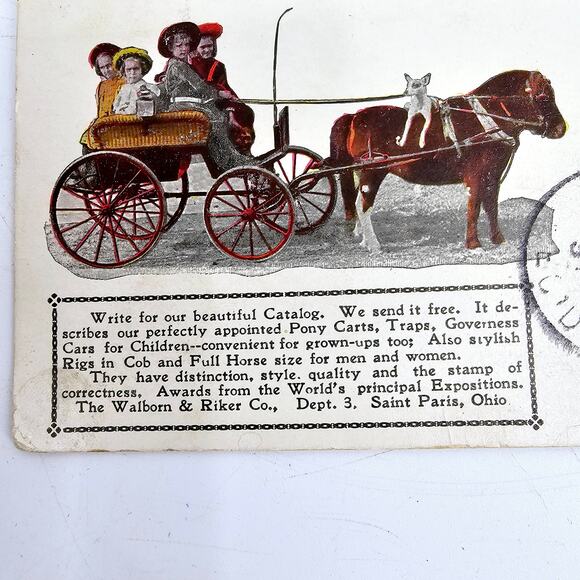 Write for our beautiful Catalog. We send it free. It de-
scribes our perfectly appointed Pony Carts, Traps, Governess
Cars for Children--convenient for grown-ups too; Also stylish
Rigs in Cob and Full Horse size for men and women.
They have distinction, style. quality and the stamp of
correctness, Awards from the World's principal Expositions.
The Walborn & Riker Co., Dept. 3, Saint Paris, Ohio